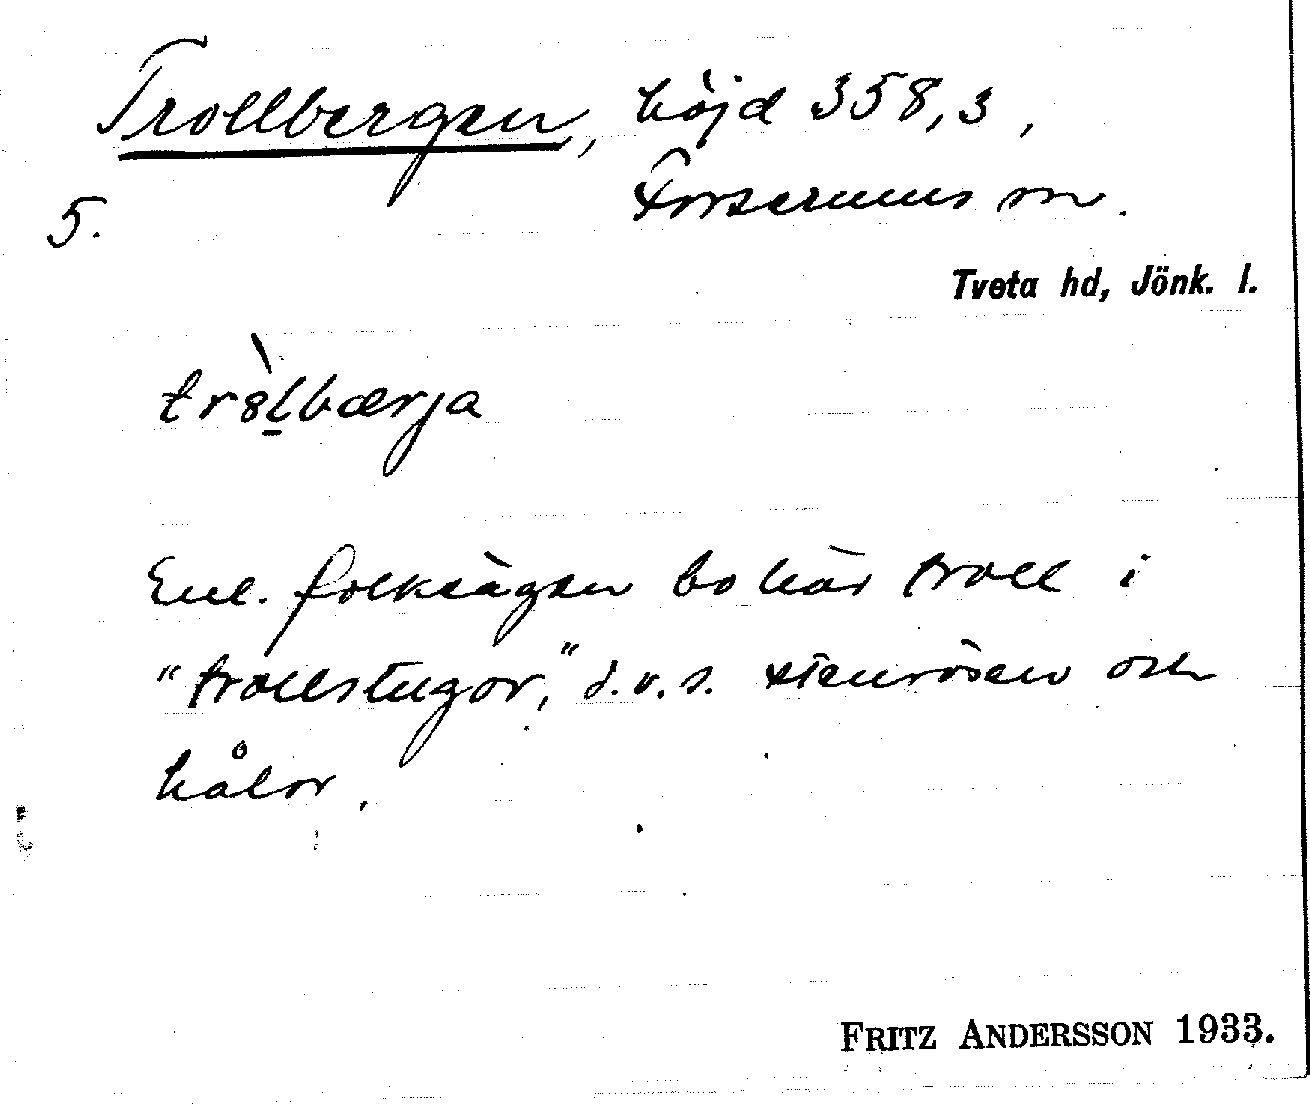 Trollbergen, höjd 358,3,
5. Forserums sn.
Tveta hd, Jönk. l.
tròlbærja
Enl. folksägen bo här troll i
"trollstugor," d.v.s. stenrösen och
hålor.
FRITZ ANDERSSON 1933.